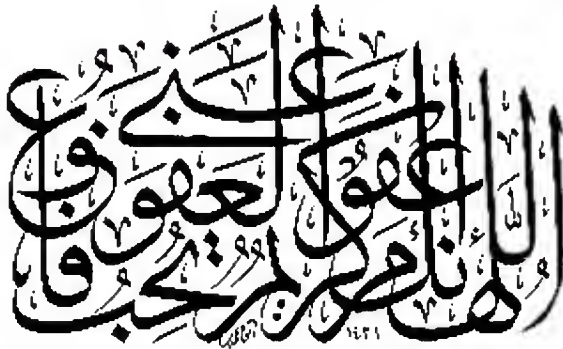 اللهم إنك عفو كريم تحب العفو فاعف عني